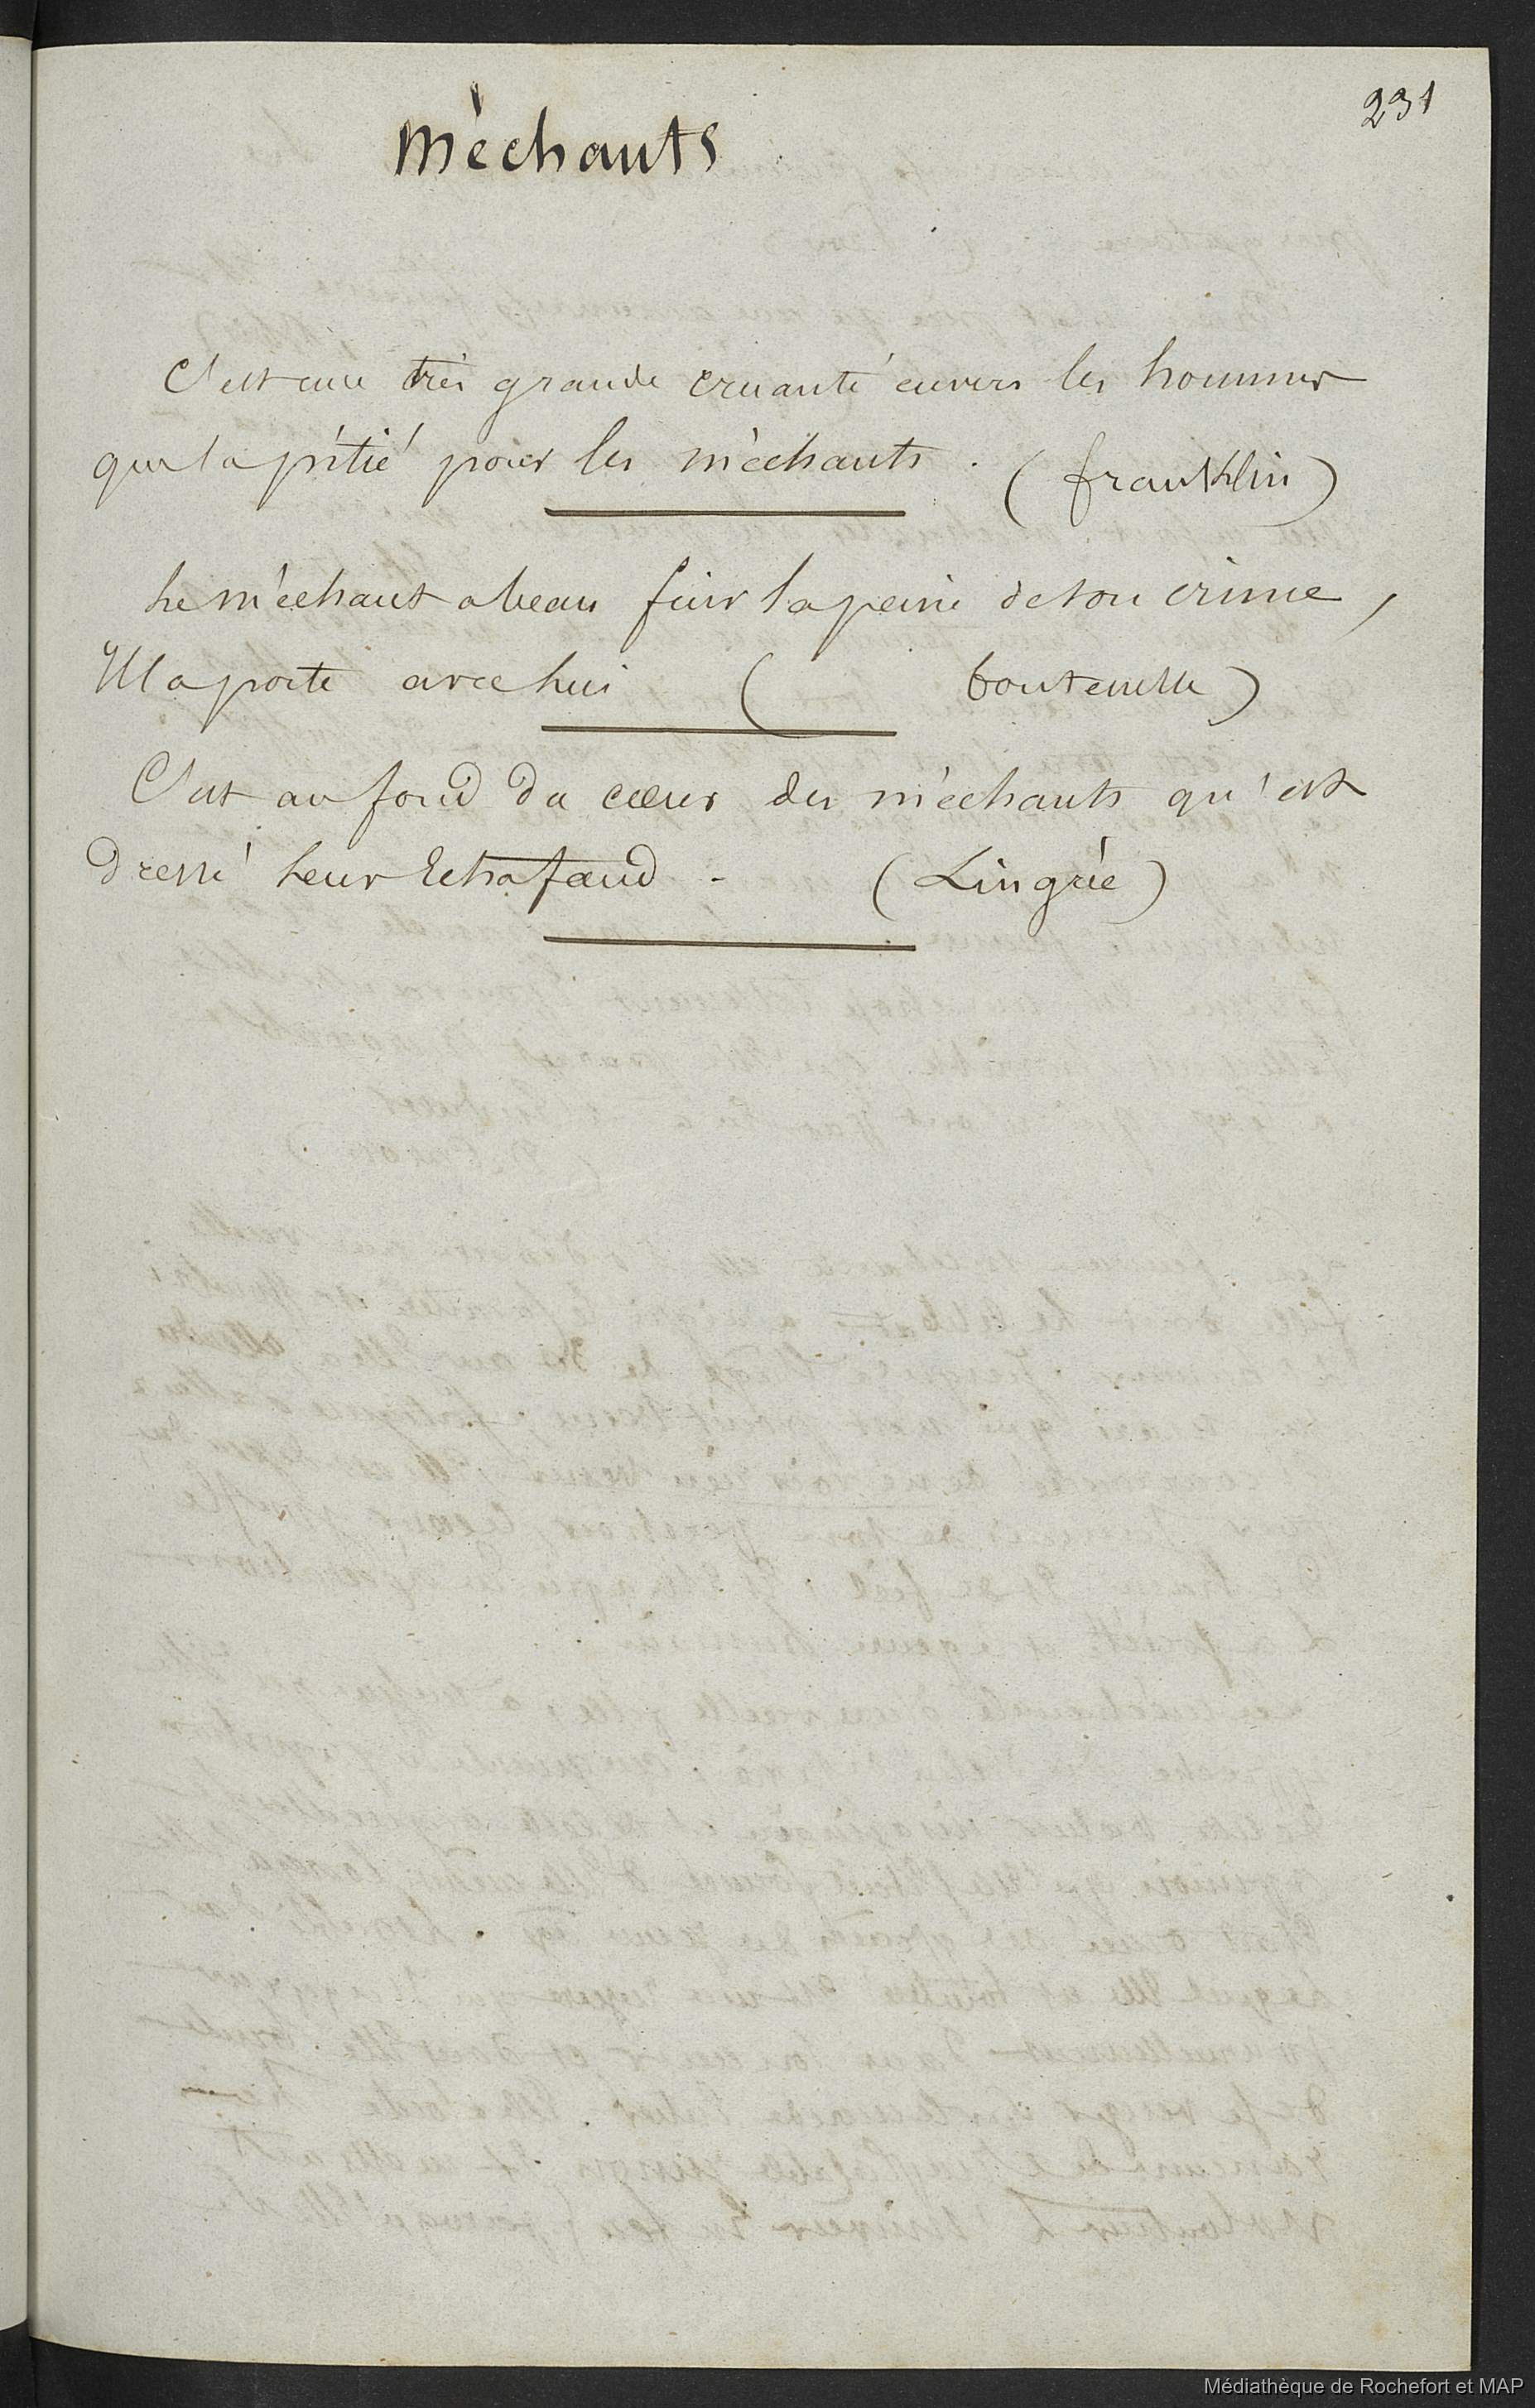 231
Méchants
C'est une très grande cruauté envers les hommes
que la pitié pour les méchants. (franklin)
Le méchant a beau fuir la peine de son crime,
Il la porte avec lui ( fontenelle)
C'est au fond du cœur des méchants qu'est
Dressé leur Echafaud - (Lingrée)
Médiathèque de Rochefort et MAP